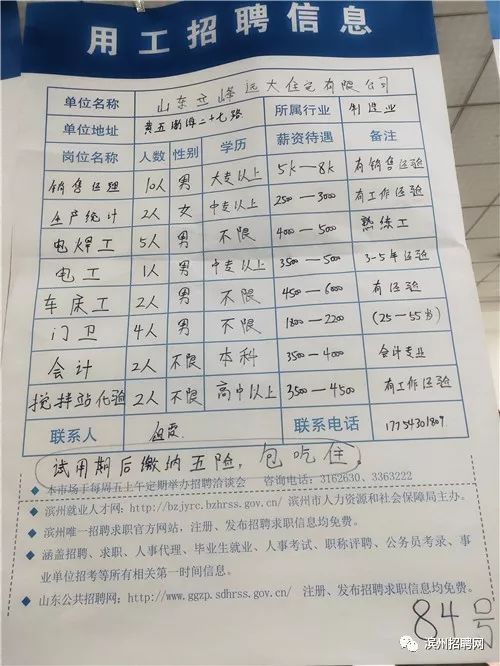 用工招聘信息
单位名称 山东立峰远大住宅有限公司
单位地址 黄五渤海二十七路 所属行业 制造业
岗位名称 人数 性别 学历 薪资待遇 备注
销售经理 10人 男 大专以上 5K—8K 有销售经验
生产统计 2人 女 中专以上 2500—3000 有工作经验
电焊工 5人 男 不限 4000—5000 熟练工
电工 1人 男 中专以上 3500—5000 3-5年经验
车床工 2人 男 不限 4500—6000 有经验
门卫 4人 男 不限 1800—2200 (25—55岁)
会计 2人 不限 本科 3500—4000 会计专业
搅拌站化验 2人 不限 高中以上 3500—4500 有工作经验
联系人 联系电话 17754301809
试用期后缴纳五险,包吃住。
◆ 本市场于每周五上午定期举办招聘洽谈会 咨询电话:3162630、3363222
◆ 滨州就业人才网:http://bzjyrc.bzhrss.gov.cn/ 滨州市人力资源和社会保障局主办。
◆ 滨州唯一招聘求职官方网站,注册、发布招聘求职信息均免费。
◆ 涵盖招聘、求职、人事代理、毕业生就业、人事考试、职称评聘、公务员考录、事
业单位招考等所有相关第一时间信息。
◆ 山东公共招聘网:http://www.ggzp.sdhrss.gov.cn/ 注册、发布招聘求职信息均免费。
84号
滨州招聘网